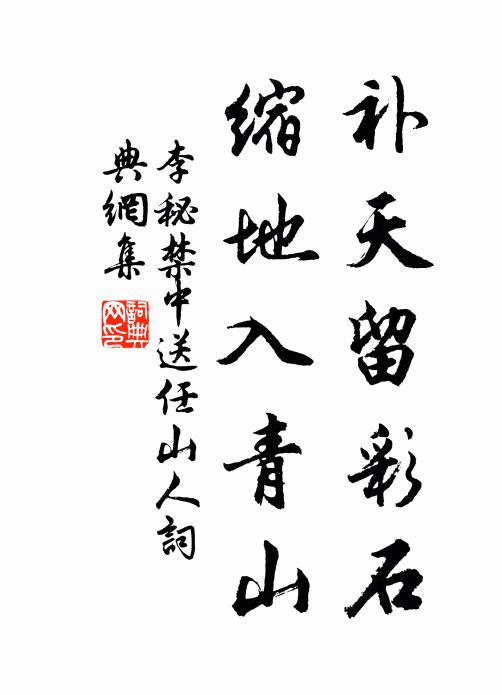 补天留彩石
缩地入青山
李秘禁中送任山人詞
典網集
詞典網印